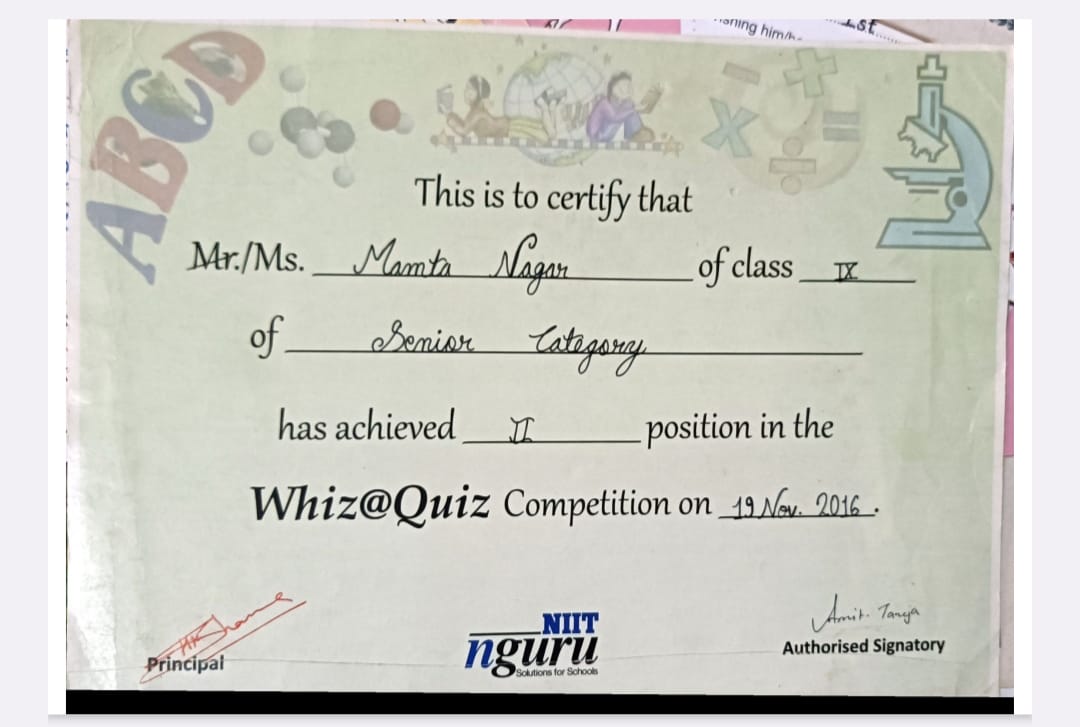 ishing him/h
Ist......
ABCD
This is to certify that
Mr./Ms. Mamta Nagar of class IX
of Senior Category
has achieved II position in the
Whiz@Quiz Competition on 19 Nov. 2016.
Principal
NIIT
nguru
Solutions for Schools
Amit Taneja
Authorised Signatory